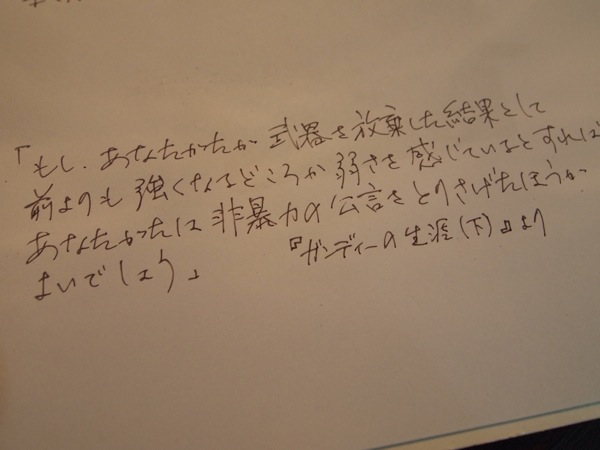 「もし、あなたがたが武器を放棄した結果として
前よりも強くなるどころか弱さを感じているとすれば
あなたがたは非暴力の公言をとりさげたほうが
よいでしょう」 『ガンディーの生涯(下)』より